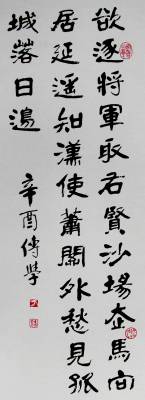 欲逐將軍取右賢沙場走馬向
居延遥知漢使蕭關外愁見孤
城落日邊
辛酉傳學